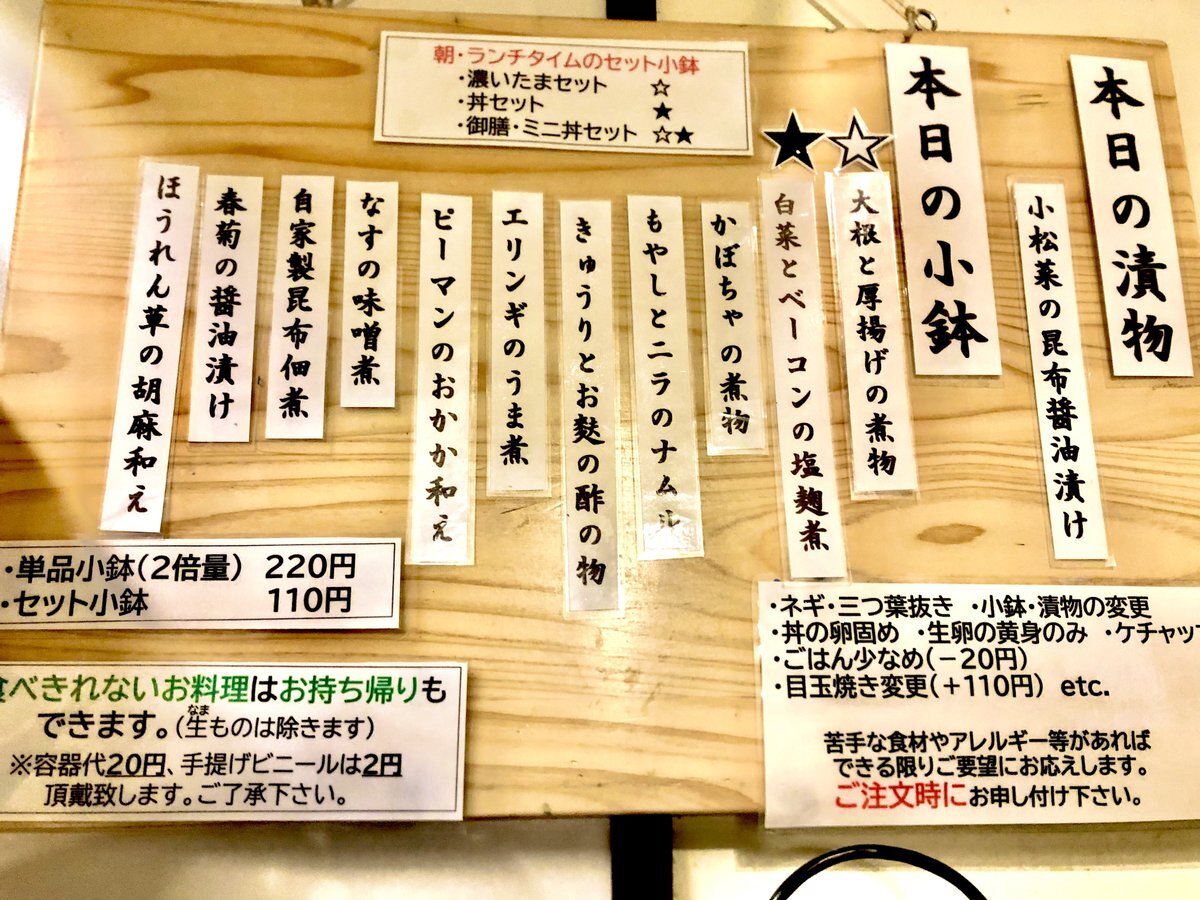 本日の漬物
小松菜の昆布醤油漬け
本日の小鉢
☆
大根と厚揚げの煮物
★
白菜とベーコンの塩麹煮
かぼちゃの煮物
もやしとニラのナムル
きゅうりとお麩の酢の物
エリンギのうま煮
ピーマンのおかか和え
なすの味噌煮
自家製昆布佃煮
春菊の醤油漬け
ほうれん草の胡麻和え
朝・ランチタイムのセット小鉢
・濃いたまセット ☆
・丼セット ★
・御膳・ミニ丼セット ☆★
・単品小鉢(2倍量) 220円
・セット小鉢 110円
食べきれないお料理はお持ち帰りも
できます。(生ものは除きます)
なま
※容器代20円、手提げビニールは2円
頂戴致します。ご了承下さい。
・ネギ・三つ葉抜き ・小鉢・漬物の変更
・丼の卵固め ・生卵の黄身のみ ・ケチャップ
・ごはん少なめ(－20円)
・目玉焼き変更(＋110円) etc.
苦手な食材やアレルギー等があれば
できる限りご要望にお応えします。
ご注文時にお申し付け下さい。